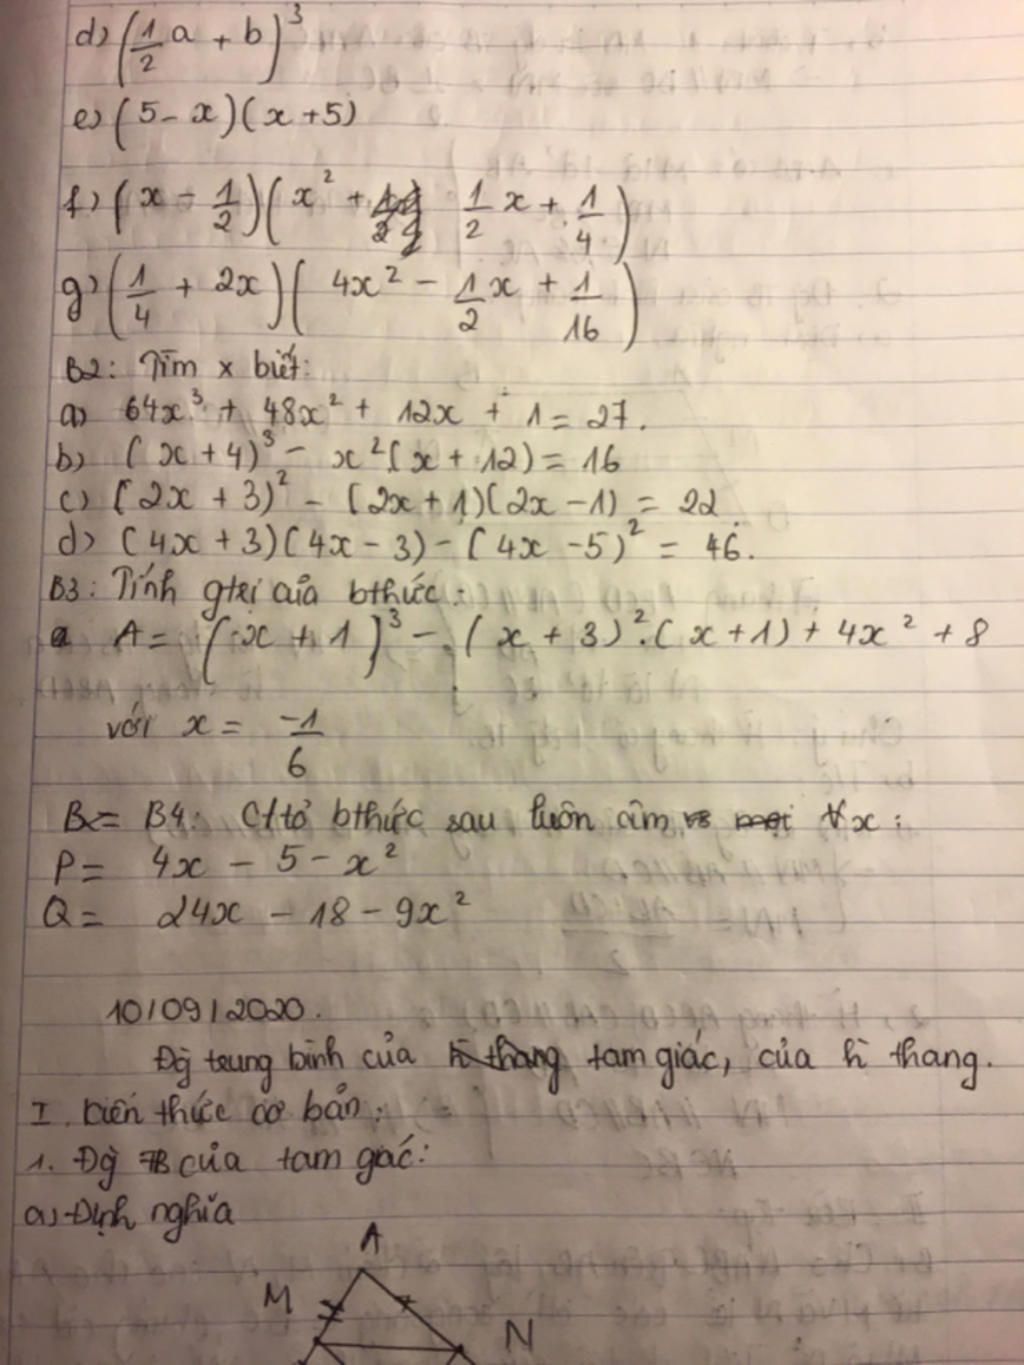 d) (1/2 a + b)³
e) (5 - x)(x + 5)
f) (x - 1/2)(x² + 1/2 x + 1/4)
g) (1/4 + 2x)(4x² - 1/2 x + 1/16)
B2: Tìm x biết:
a) 64x³ + 48x² + 12x + 1 = 27.
b) (x + 4)³ - x²(x + 12) = 16
c) (2x + 3)² - (2x + 1)(2x - 1) = 22
d) (4x + 3)(4x - 3) - (4x - 5)² = 46.
B3: Tính gtrị của bthức:
A = (x + 1)³ - (x + 3)².(x + 1) + 4x² + 8
với x = -1/6
B4: C/tỏ bthức sau luôn âm ∀x:
P = 4x - 5 - x²
Q = 24x - 18 - 9x²
10/09/2020.
Đg trung bình của tam giác, của h thang.
I. Kiến thức cơ bản:
1. Đg TB của tam gác:
a) Định nghĩa
A
M
N